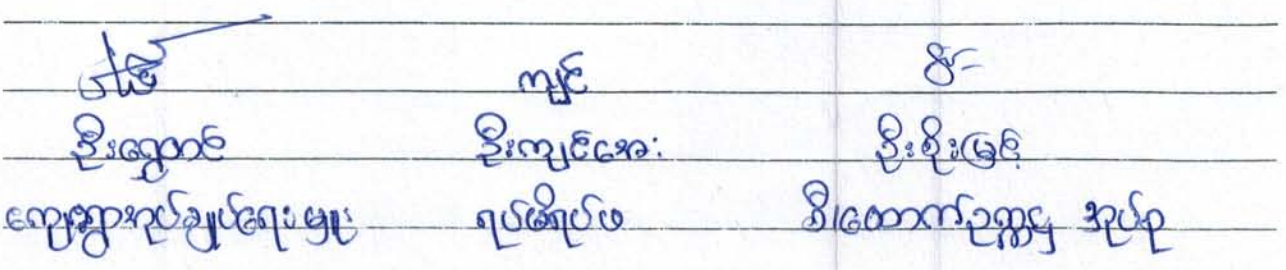 ကျင်
ဦးရွှေတင် ဦးကျင်အေး ဦးစိုးမြင့်
ကျေးရွာအုပ်ချုပ်ရေးမှူး ရပ်မိရပ်ဖ ဒီ၊ထောက်ဥက္ကဋ္ဌ အုပ်စု